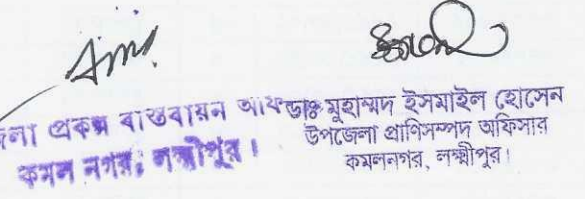 জেলা প্রকল্প বাস্তবায়ন
কমল নগর, লক্ষ্মীপুর।
ডাঃ মুহাম্মদ ইসমাইল হোসেন
উপজেলা প্রাণিসম্পদ অফিসার
কমলনগর, লক্ষ্মীপুর।